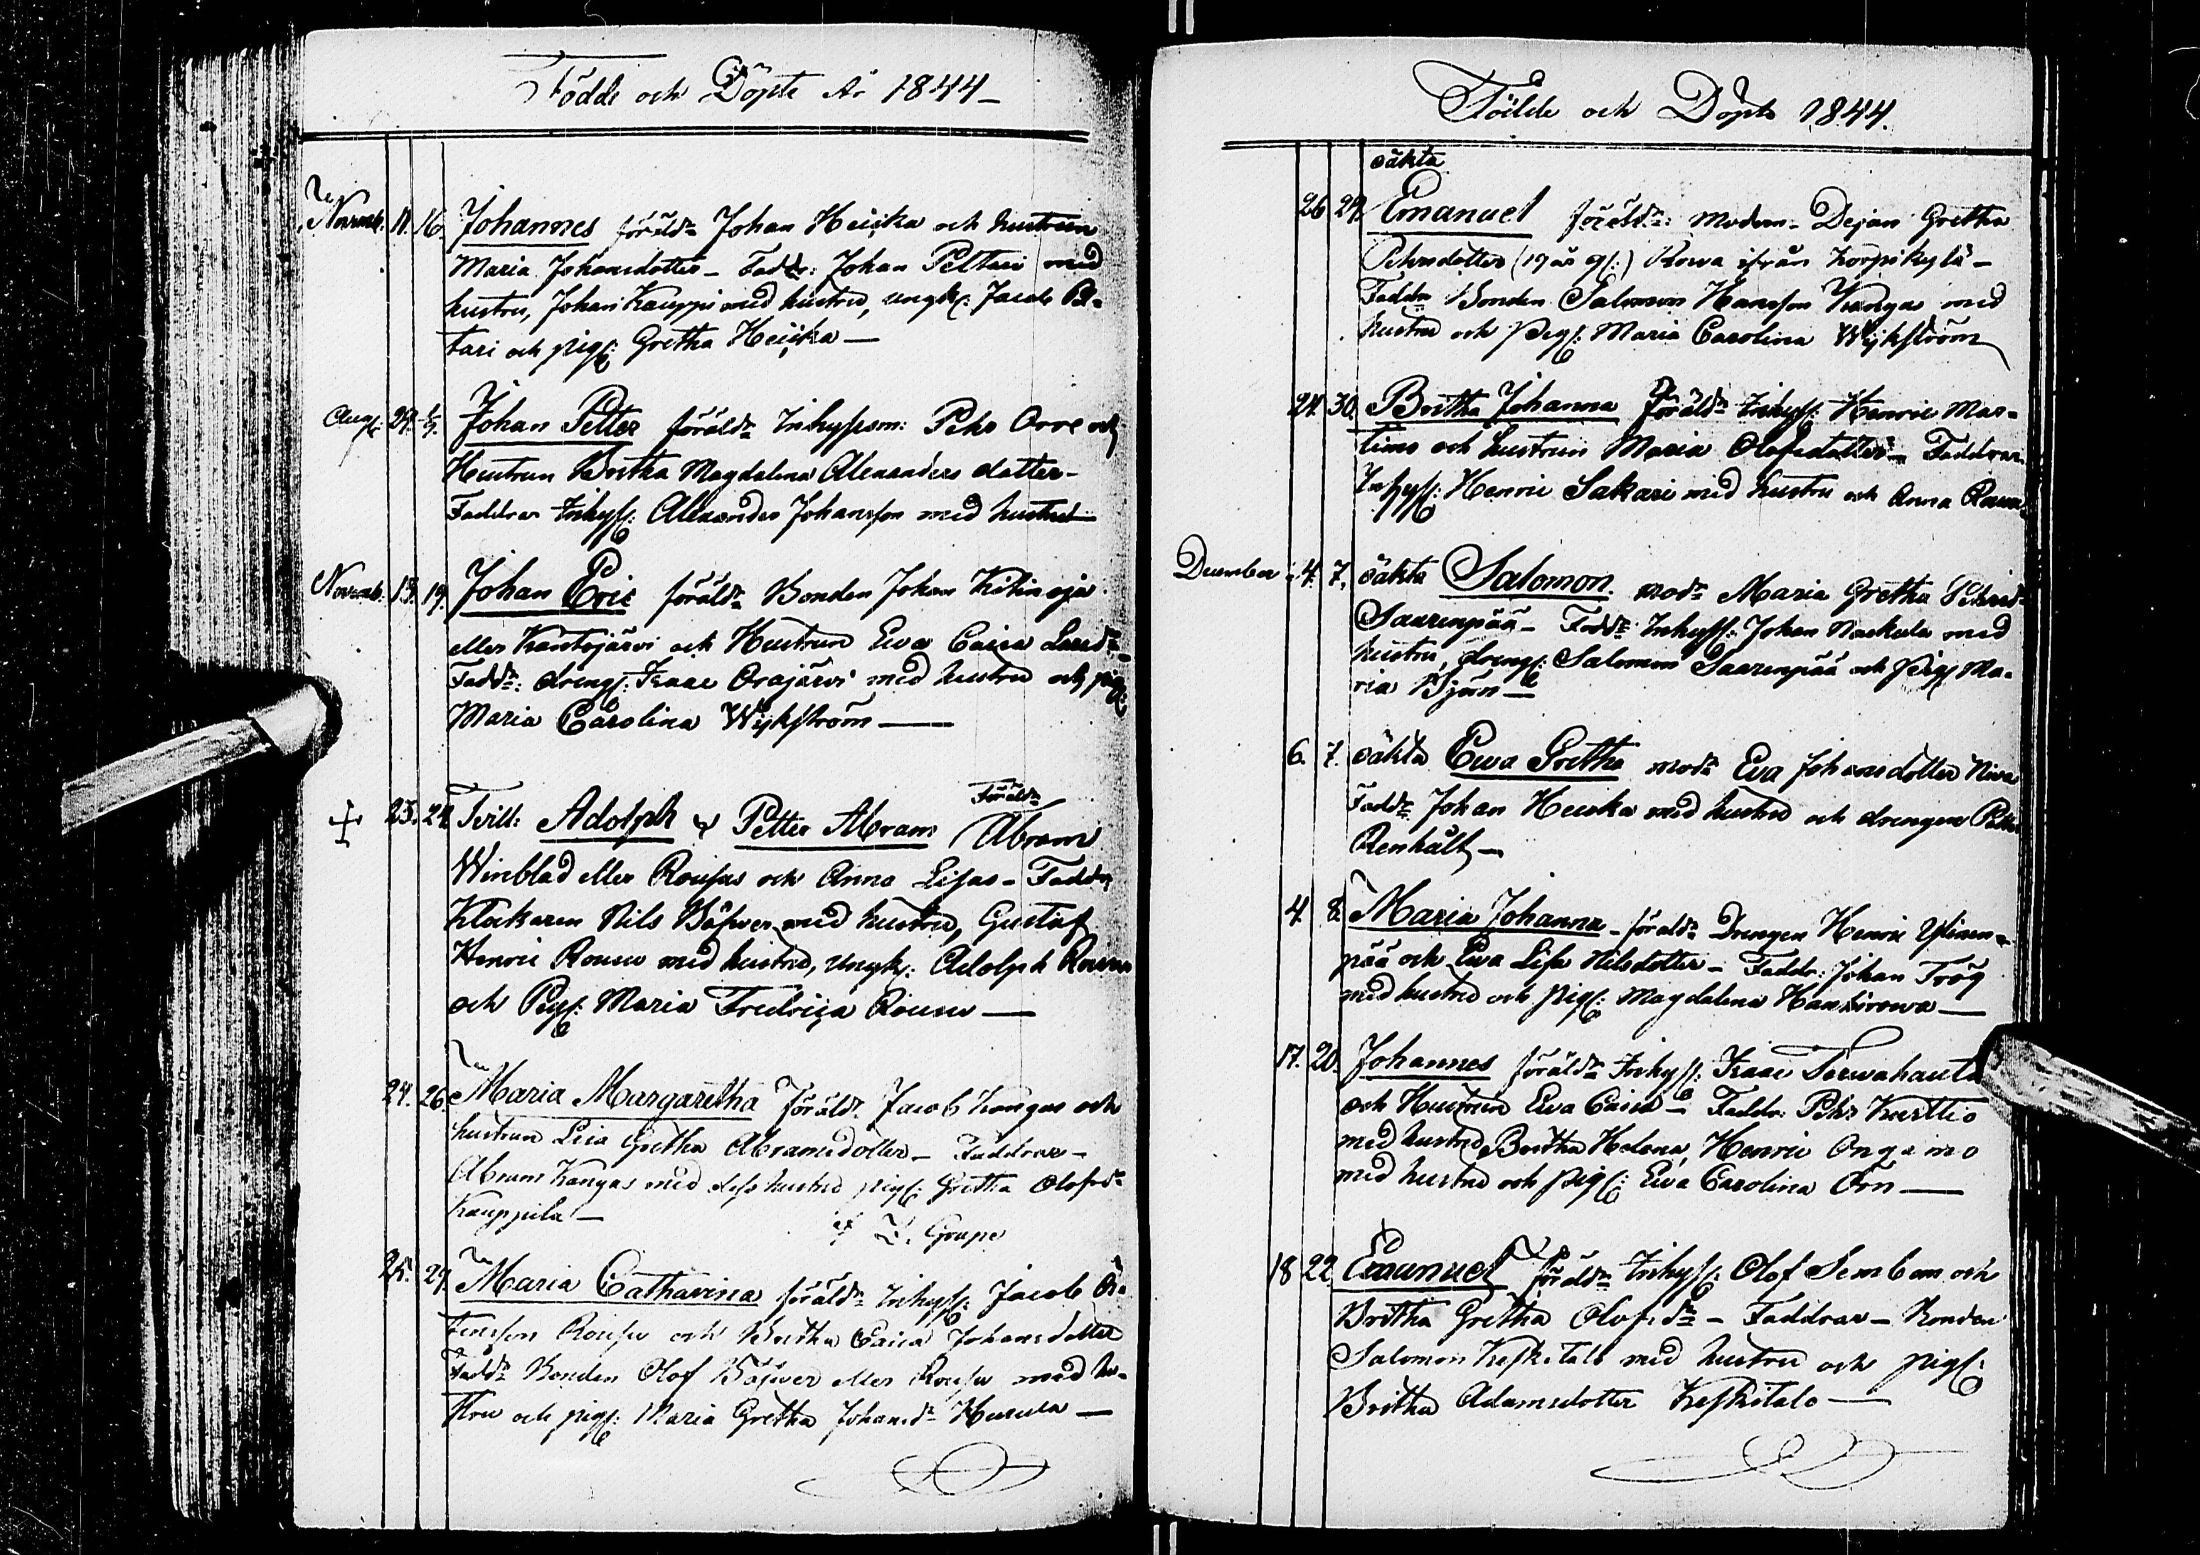 Födde och Döpte År 1844
Novemb. 11. 16. Johannes föräldr Johan Heicka och hustrun
Maria Johansdotter - Faddr: Johan Peltari med
hustru, Johan Kauppi med hustru, ungk: Jacob Pel-
tari och pig: Gretha Heicka —
Aug: 29. Johan Petter föräldr Inhyssm: Pehr Orre och
Hustrun Britha Magdalena Alexanders dotter -
Faddrar Inhyss: Alexander Johansson med hustru
Novemb. 13. 19. Johan Eric föräldr Bonden Johan
eller Kantojärvi och Hustrun Eva Caisa Larsdr
Faddr: dreng: Isaac Orajärvi med hustru och pig:
Maria Carolina Wijkström —
Föräldr
23. 24. Tvill: Adolph & Petter Abram Abram
Winblad eller Roufus och Anna Lisas - Faddr
Klockaren Nils Böfver med hustru, Gustaf
Henric Rousu med hustru, Ungk: Adolph Rousu
och Pig: Maria Fredrica Rousu —
24. 26. Maria Margaretha Föräldr. Jacob Kangas och
hustrun Lisa Gretha Abramsdotter - Faddrar -
Abram Kangas med dess hustru pig: Gretha Olofsdr
Kauppila — af L. Grape
25. 29. Maria Catharina föräldr Inhyss: Jacob
Roufu och Britha Caisa Johansdotter
Faddr Bonden Olof Böfver eller Roufu med hu-
stru och pig: Maria Gretha Johansdr —
Födde och Döpte 1844.
oäkta
26 29. Emanuel föräldr: Modren - Dejan Gretha
Pehrsdotter (19 år g:) Rowa ifrån Korpikylä -
Faddr Bonden Salomon Hansson Kangas med
hustru och Pig: Maria Carolina Wijkström
24. 30. Britha Johanna föräldr Inhyss: Henric Mar-
timo och hustrun Maria Olofsdotter - Faddrar
Inhyss: Henric Sakari med hustru och Anna
December 4. 7. oäkta Salomon. modr Maria Gretha Pehrsdr
Saarenpää - Faddr Inhyss: Johan med
hustru, dreng: Salomon Saarenpää och Pig: Ma-
ria Björn —
6. 7. oäkta Ewa Gretha modr Eva Johansdotter Niva
Faddr Johan Heicka med hustru och drengen Petter
Renhält —
4. 8. Maria Johanna - föräldr Drengen Henric Ylinen-
pää och Ewa Lisa Nilsdotter - Faddr: Johan Trög
med hustru och pig: Magdalena —
17. 20. Johannes föräldr Inhyss: Isaac Terwahauta
och Hustrun Eva Caisa — Faddr: Pehr Kurttio
med hustru Britha Helena, Henric Ongamo
med hustru och pig: Eva Carolina Örn —
18 22 Emanuel föräldr Inhyss: Olof Semban och
Britha Gretha Olofsdr - Faddrar - Bonden
Salomon Keskitalo med hustru och pig:
Britha Adamsdotter Keskitalo —